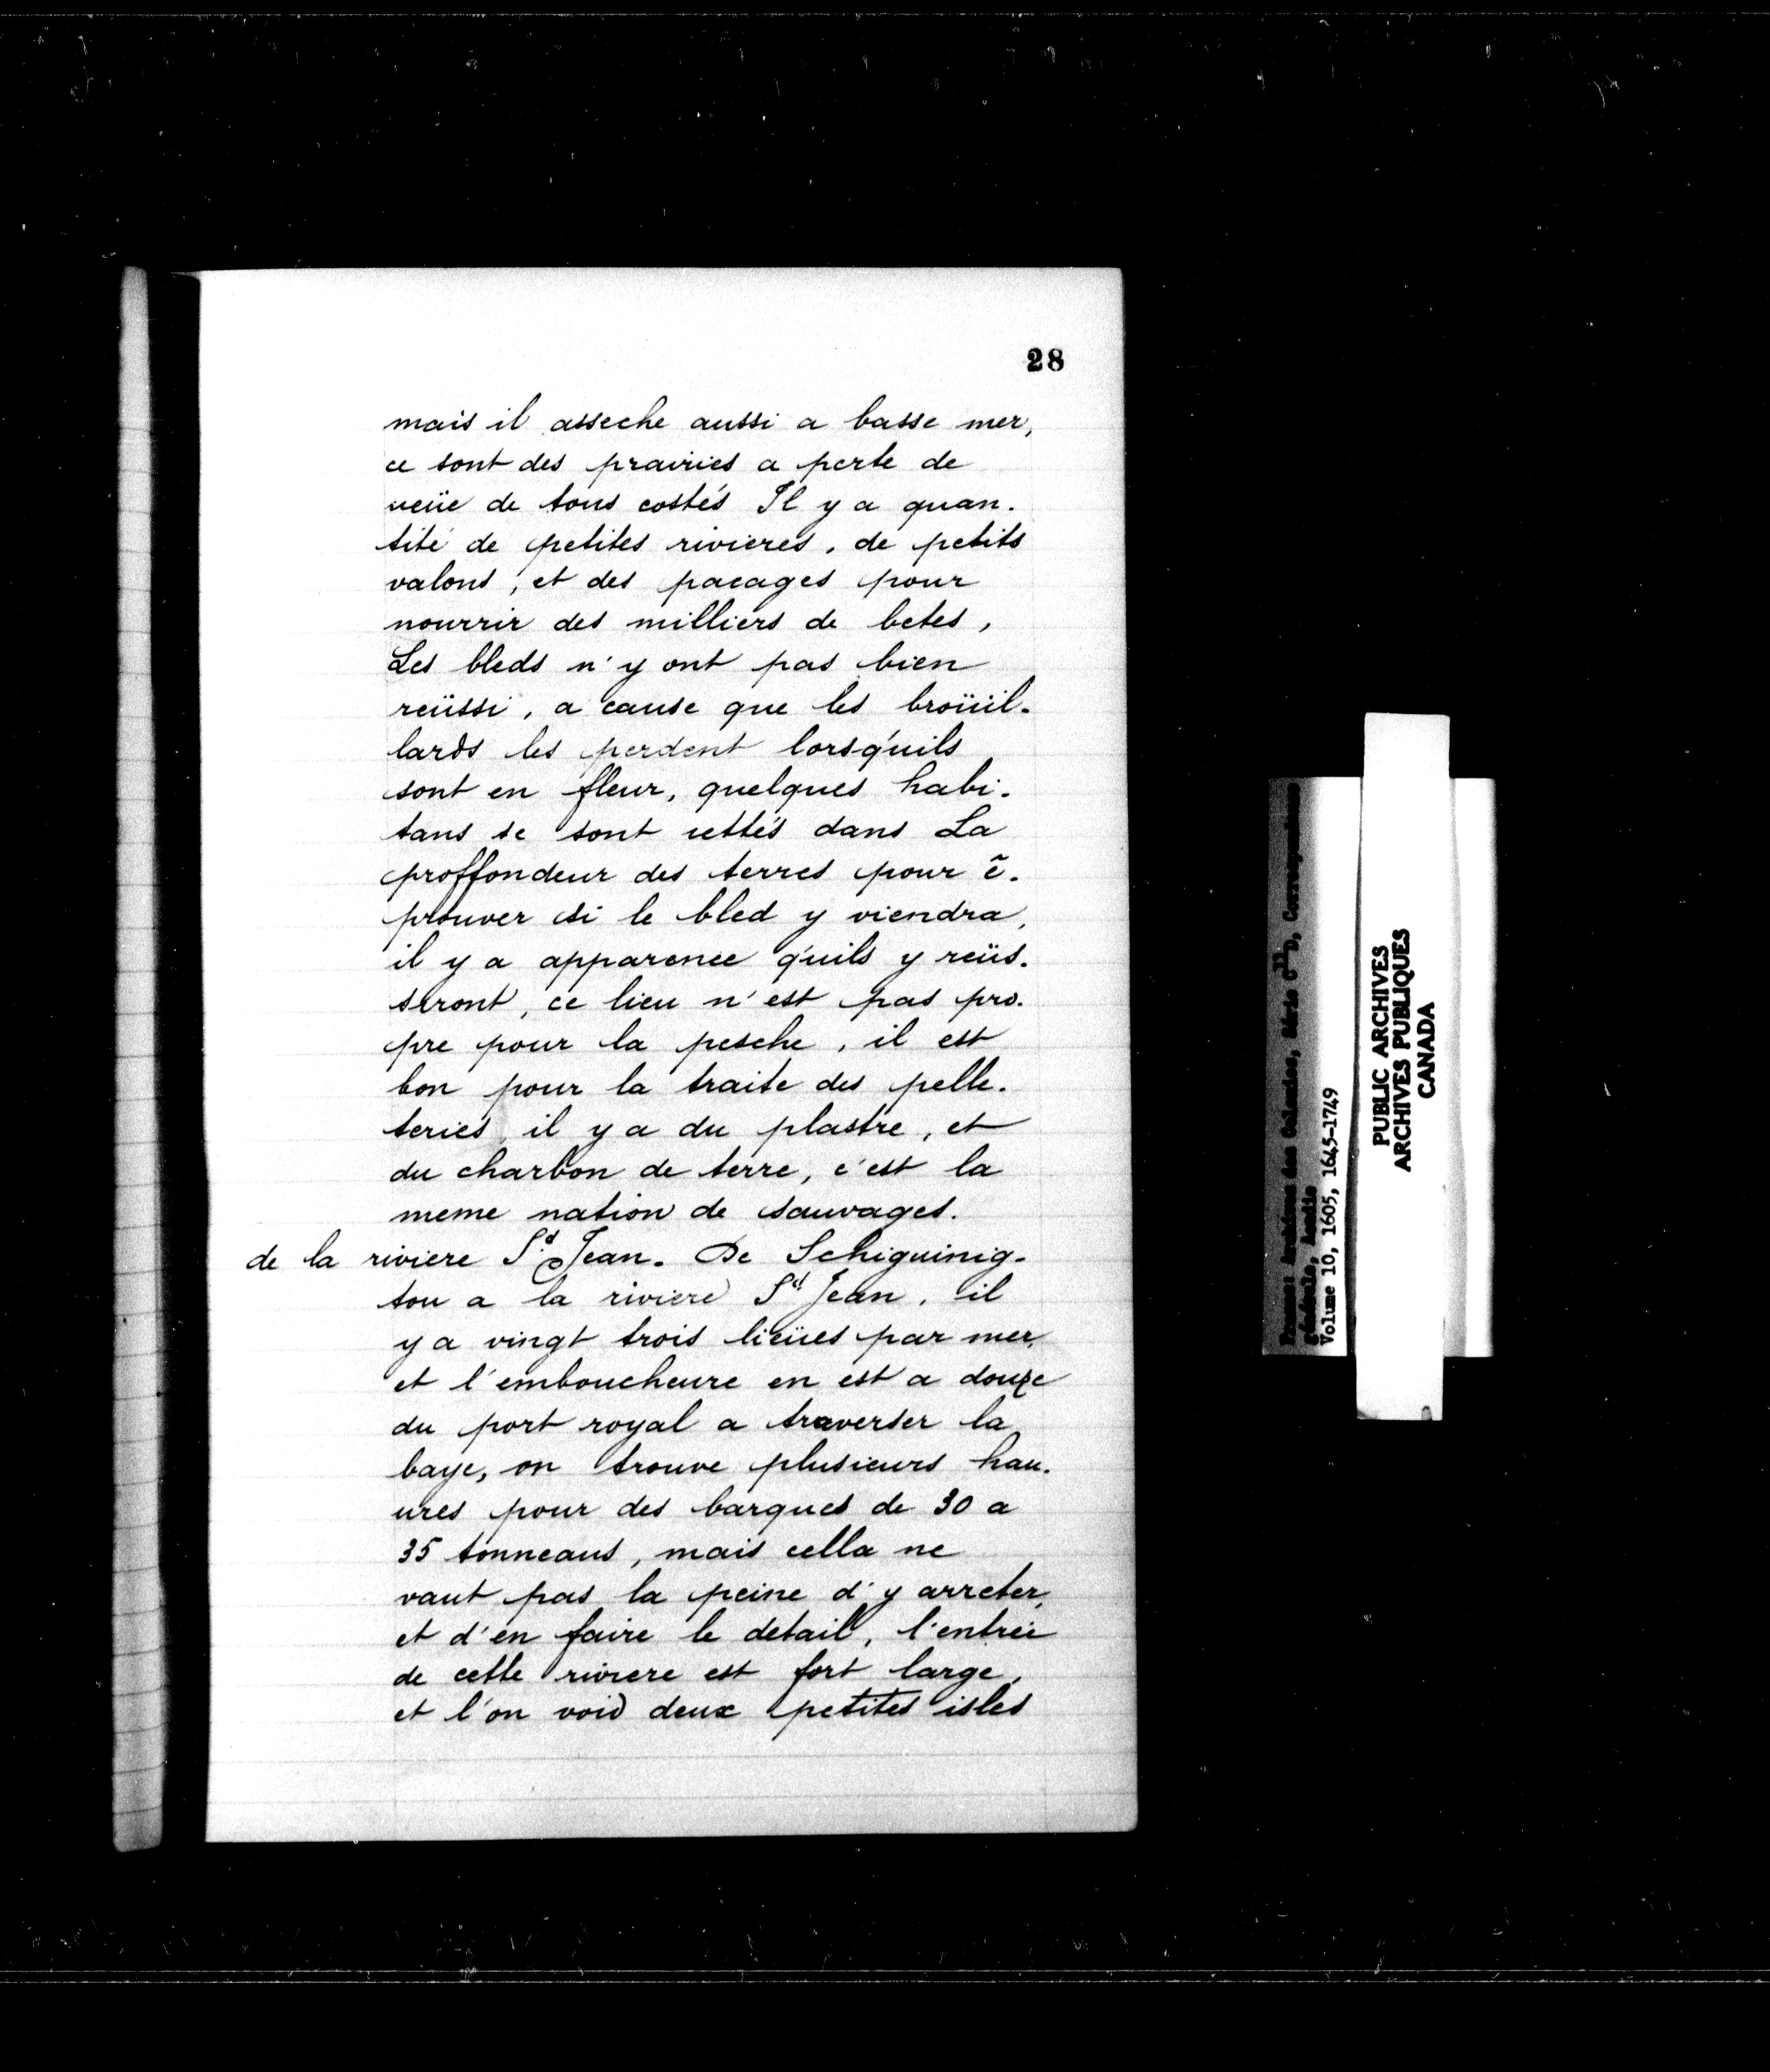 28
mais il asseche aussi a basse mer,
ce sont des prairies a perte de
veüe de tous costés Il y a quan.
tité de petites rivieres, de petits
valons, et des pacages pour
nourrir des milliers de betes,
Les bleds n'y ont pas bien
reüssi, a cause que les broüil.
lards les perdent lorsq'uils
sont en fleur, quelques habi.
tans se sont iettés dans La
proffondeur des terres pour ẽ.
prouver si le bled y viendra,
il y a apparence q'uils y reüs.
seront, ce lieu n'est pas pro.
pre pour la pesche, il est
bon pour la traite des pelle.
teries, il y a du plastre, et
du charbon de terre, c'est la
meme nation de sauvages.
de la riviere St Jean. De Schiguinig.
tou a la riviere St Jean, il
y a vingt trois lieües par mer,
et l'emboucheure en est a douze
du port royal a traverser la
baye, on trouve plusieurs hau.
ures pour des barques de 30 a
35 tonneaus, mais cella ne
vaut pas la peine d'y arreter,
et d'en faire le detail, l'entrée
de cette riviere est fort large,
et l'on void deux petites isles
France: Archives des Colonies, Série C11D, Correspondance
générale, Acadie
Volume 10, 1605, 1645-1749
PUBLIC ARCHIVES
ARCHIVES PUBLIQUES
CANADA